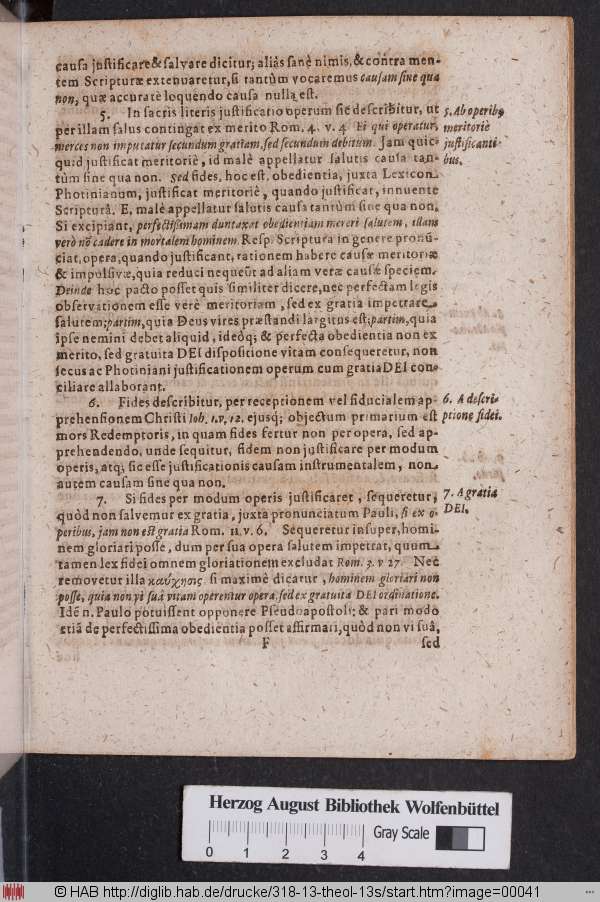 causa justificare & salvare dicitur; aliàs sanè nimis, & contra men-
tem Scripturæ extenuaretur, si tantùm vocaremus causam sine qua
non, quæ accuratè loquendo causa nulla est.
5. In sacris literis justificatio operum sic describitur, ut
per illam salus contingat ex merito Rom. 4. v. 4 Ei qui operatur,
merces non imputatur secundum gratiam, sed secundum debitum. Jam quic-
quid justificat meritoriè, id malè appellatur salutis causa tan-
tùm sine qua non. Sed fides, hoc est, obedientia, juxta Lexicon
Photinianum, justificat meritoriè, quando justificat, innuente
Scripturâ. E. malè appellatur salutis causa tantùm sine qua non.
Si excipiant, perfectissimam duntaxat obedientiam mereri salutem, illam
verò nō cadere in mortalem hominem. Resp. Scriptura in genere pronū-
ciat, opera, quando justificant, rationem habere causæ meritoriæ
& impulsivæ, quia reduci nequeūt ad aliam veræ causæ speciem.
Deinde hoc pacto posset quis similiter dicere, nec perfectam legis
observationem esse verè meritoriam, sed ex gratia impetrare
salutem; partim, quia Deus vires præstandi largitus est; partim, quia
ipse nemini debet aliquid, ideoq; & perfecta obedientia non ex
merito, sed gratuita DEI dispositione vitam consequeretur, non
secus ac Photiniani justificationem operum cum gratia DEI con-
ciliare allaborant.
6. Fides describitur, per receptionem vel fiducialem ap-
prehensionem Christi Ioh. 1. v. 12. ejusq; objectum primarium est
mors Redemptoris, in quam fides fertur non per opera, sed ap-
prehendendo, unde sequitur, fidem non justificare per modum
operis, atq; sic esse justificationis causam instrumentalem, non
autem causam sine qua non.
7. Si fides per modum operis justificaret, sequeretur,
quòd non salvemur ex gratia, juxta pronunciatum Pauli, si ex o-
peribus, jam non est gratia Rom. 11. v. 6. Sequeretur insuper, homi-
nem gloriari posse, dum per sua opera salutem impetrat, quum
tamen lex fidei omnem gloriationem excludat Rom. 3. v 27. Nec
removetur illa καύχησις si maximè dicatur, hominem gloriari non
posse, quia non vi suâ vitam operentur opera, sed ex gratuita DEI ordinatione.
Idē n. Paulo potuissent opponere Pseudoapostoli; & pari modo
etiā de perfectissima obedientia posset affirmari, quòd non vi suâ,
F sed
5. Ab operibq
meritoriè
justificanti-
bus.
6. A descri-
ptione fidei.
7. A gratia
DEI.
Herzog August Bibliothek Wolfenbüttel
Gray Scale
0 1 2 3 4
© HAB http://diglib.hab.de/drucke/318-13-theol-13s/start.htm?image=00041